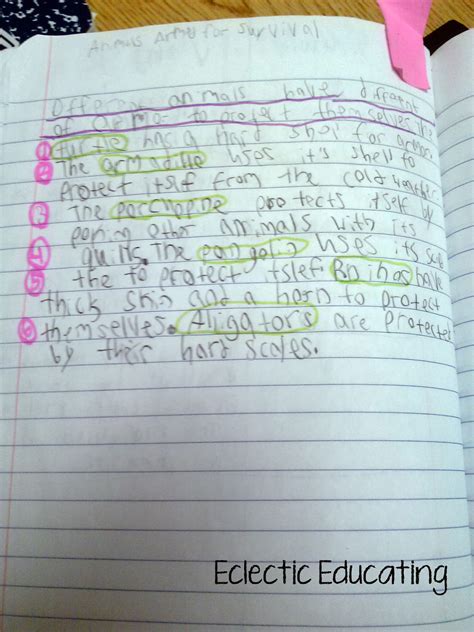 Animals Armed for survival
Different animals have different
of armor to protect themselves. The
① turtle has a hard shell for armor.
② The armadillo uses it's shell to
protect itself from the cold weather
③ The porcupine protects itself by
poking other animals with its
④ quills. The pangolin uses its scale
⑤ the to protect itslef. Rnihos have
thick skin and a horn to protect
⑥ themselves. Aligators are protected
by their hard scales.
Eclectic Educating